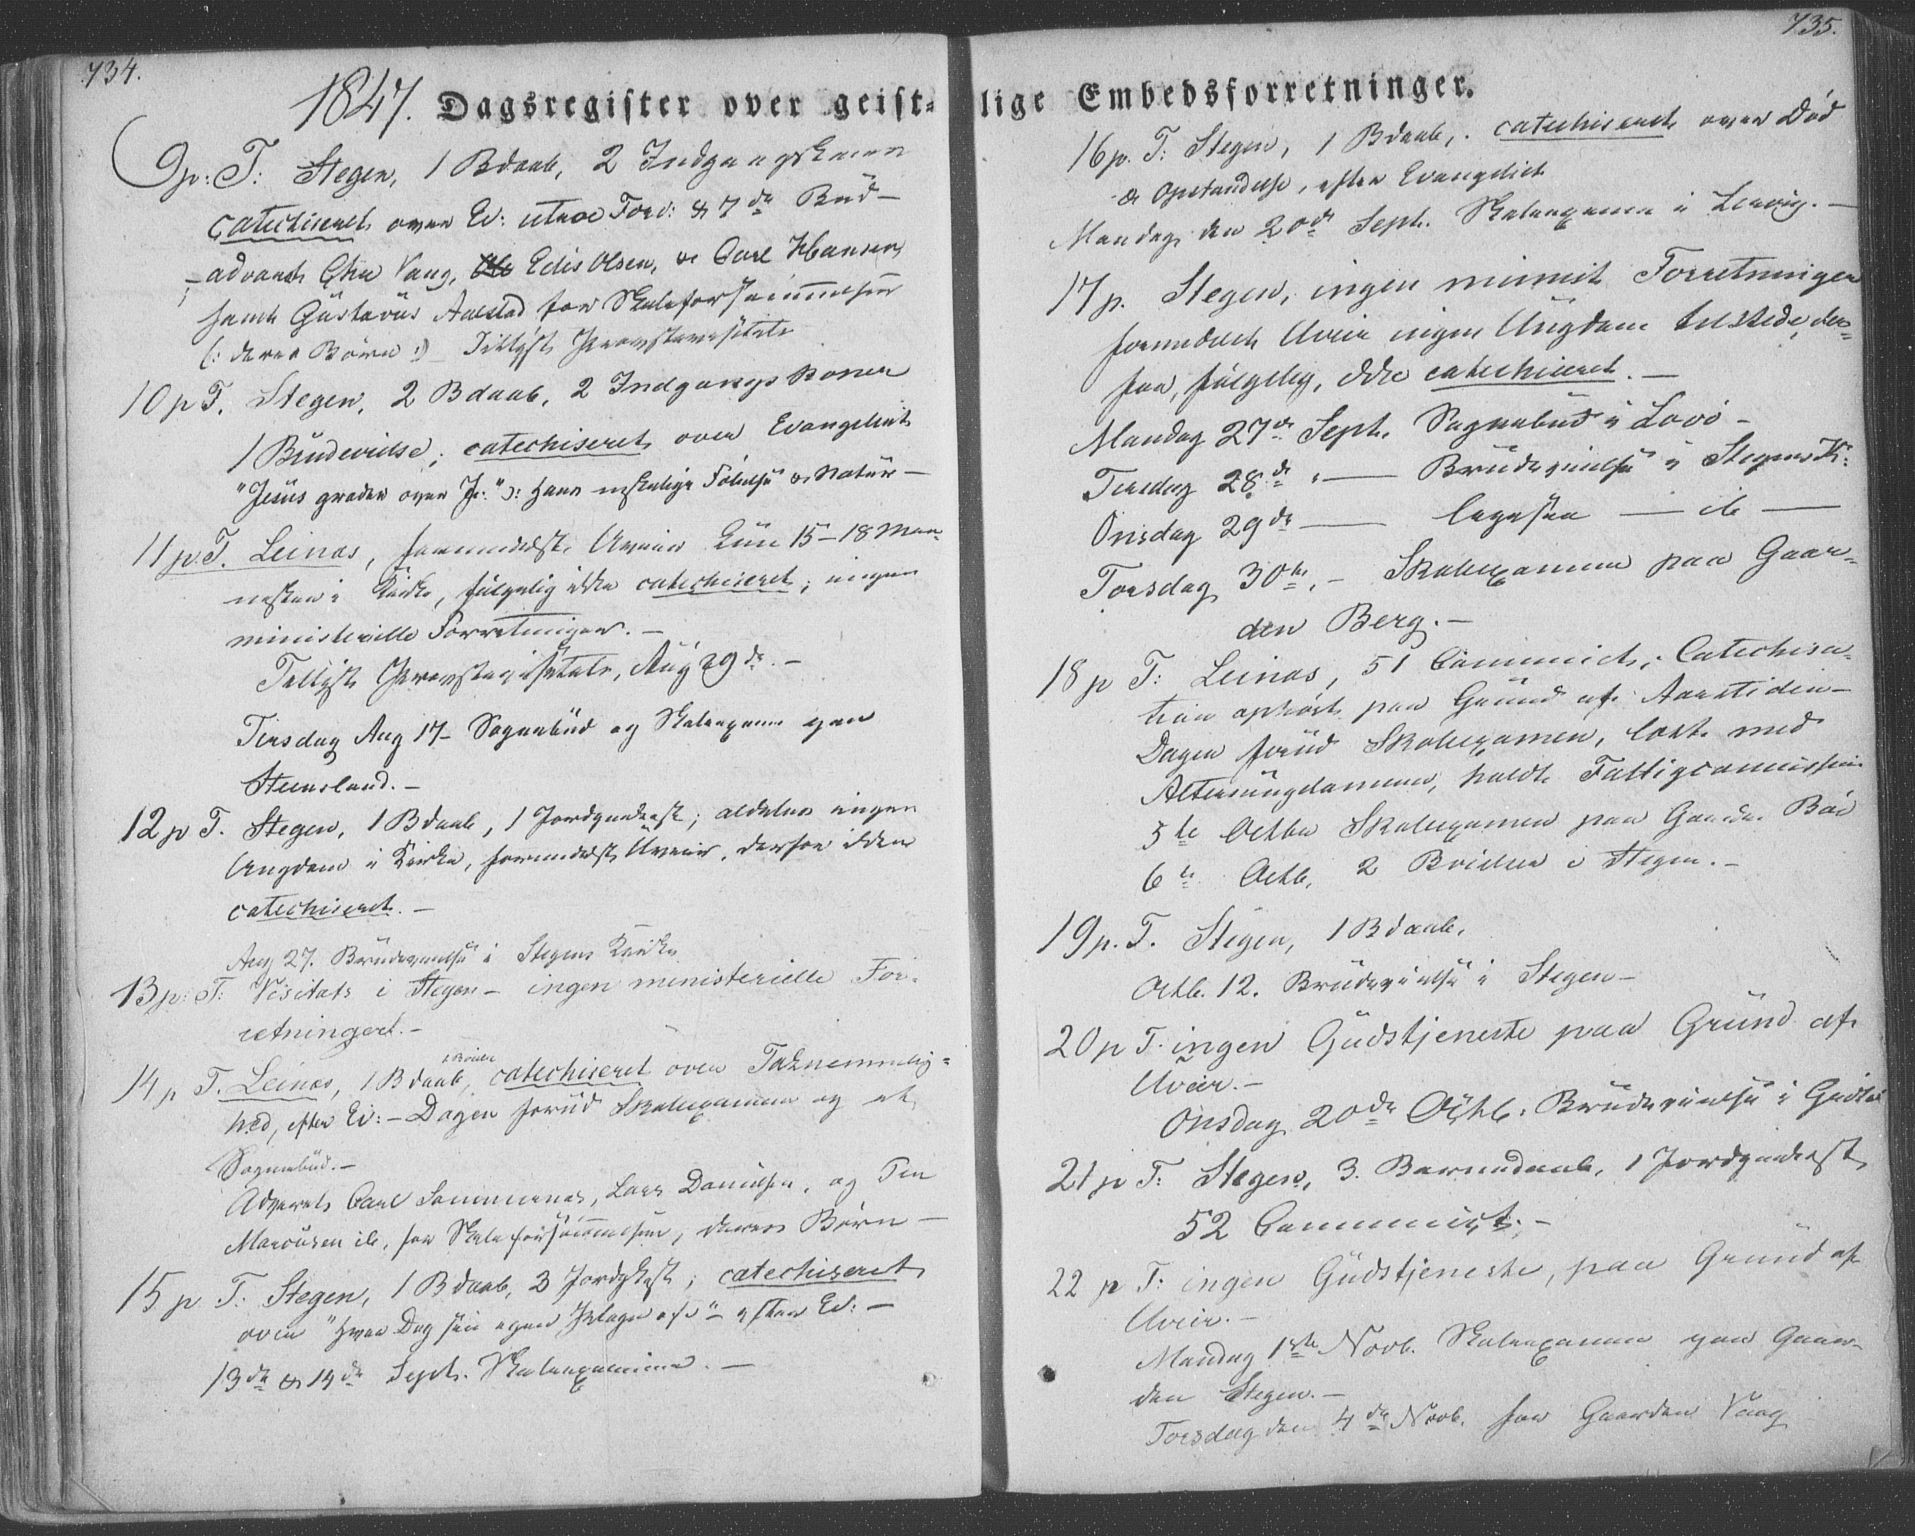 734.
1847. Dagsregister over geist-
9 p: T: Stegen, 1 Bdaab, 2 Indgangskoner
catechiseret over Ev: 7de Bud—
advaret Vaag, Edis Olsen, & Carl Hansen,
samt Gustavus Aalstad for Skoleforsømmelser
(: deres Børn :) — Tillyst Provstevisitats
10 p T. Stegen, 2 Bdaab, 2 Indgangskoner
1 Brudevielse; catechiseret over Evangeliet
"Jesus græder over Je:" ɔ: Hans Følelse & Natur —
11 p. T. Leines, formedelst Uveir kun 15–18 Men-
nesker i Kirke, følgelig ikke catechiseret; ingen
ministerielle Forretninger. —
Tillyst Provstevisitats, Aug 29de. —
Tirsdag Aug 17– Sognebud og Skoleexamen paa
Steensland. —
12 p T. Stegen, 1 Bdaab, 1 Jordpaakast; aldeles ingen
Ungdom i Kirke, formedelst Uveir, derfor ikke
catechiseret. —
Aug 27. Brudevielse i Stegens Kirke
13 p: T: Visitats i Stegen – ingen ministerielle For-
retninger. –
14 p T. Leines, 1 Bdaab, catechiseret over Taknemmelig-
hed, efter Ev: – Dagen forud Skoleexamen og et
Sognebud. –
Advaret Carl Sommernes, Lars Danielsen, og Peu
Marcusen ib, for Skoleforsømmelser, deres Børn —
15 p T: Stegen, 1 Bdaab, 3 Jordpkast; catechiseret
over "Hver Dag sin egen Plage &c" – efter Ev: —
13de & 14de Sept. Skoleexamina. —
735.
lige Embedsforretninger.
16 p. T: Stegen, 1 Bdaab, catechiseret over Død
& Opstandelse, efter Evangeliet
Mandag den 20de Sept. Skoleexamen i —
17 p. Stegen, ingen minist Forretninger
formedelst Uveir ingen Ungdom tilstede, der-
for, følgelig, ikke catechiseret. —
Mandag 27de Sept. Sognebud i Lovö –
Tirsdag 28de — Brudevielse i Stegens K:
Onsdag 29de — ligesaa — ib —
Torsdag 30te, – Skoleexamen paa Gaar-
den Berg. –
18 p T: Leines, 51 Communict; Catechisa-
tion ophørt paa Grund af Aarstiden —
Dagen forud Skoleexamen, læst med
Altersungdommen, holdt Fattigcommission
5te Octbr Skoleexamen paa Gaarden Bøe
6te Octb. 2 Bvielser i Stegen. –
19 p. T. Stegen, 1 Bdaab,
Octb. 12. Brudevielse i Stegen –
20 p T. ingen Gudstjeneste paa Grund af
Uveir. –
Onsdag 20de Octb. Brudevielse i
21 p T: Stegen, 3. Barnedaab, 1 Jordpaakast,
52 Communict. –
22 p T: ingen Gudstjeneste, paa Grund af
Uveir. –
Mandag 1ste Novb. Skoleexamen paa Gaar-
den Stegen. –
Torsdag den 4de Novb. paa Gaarden Vaag